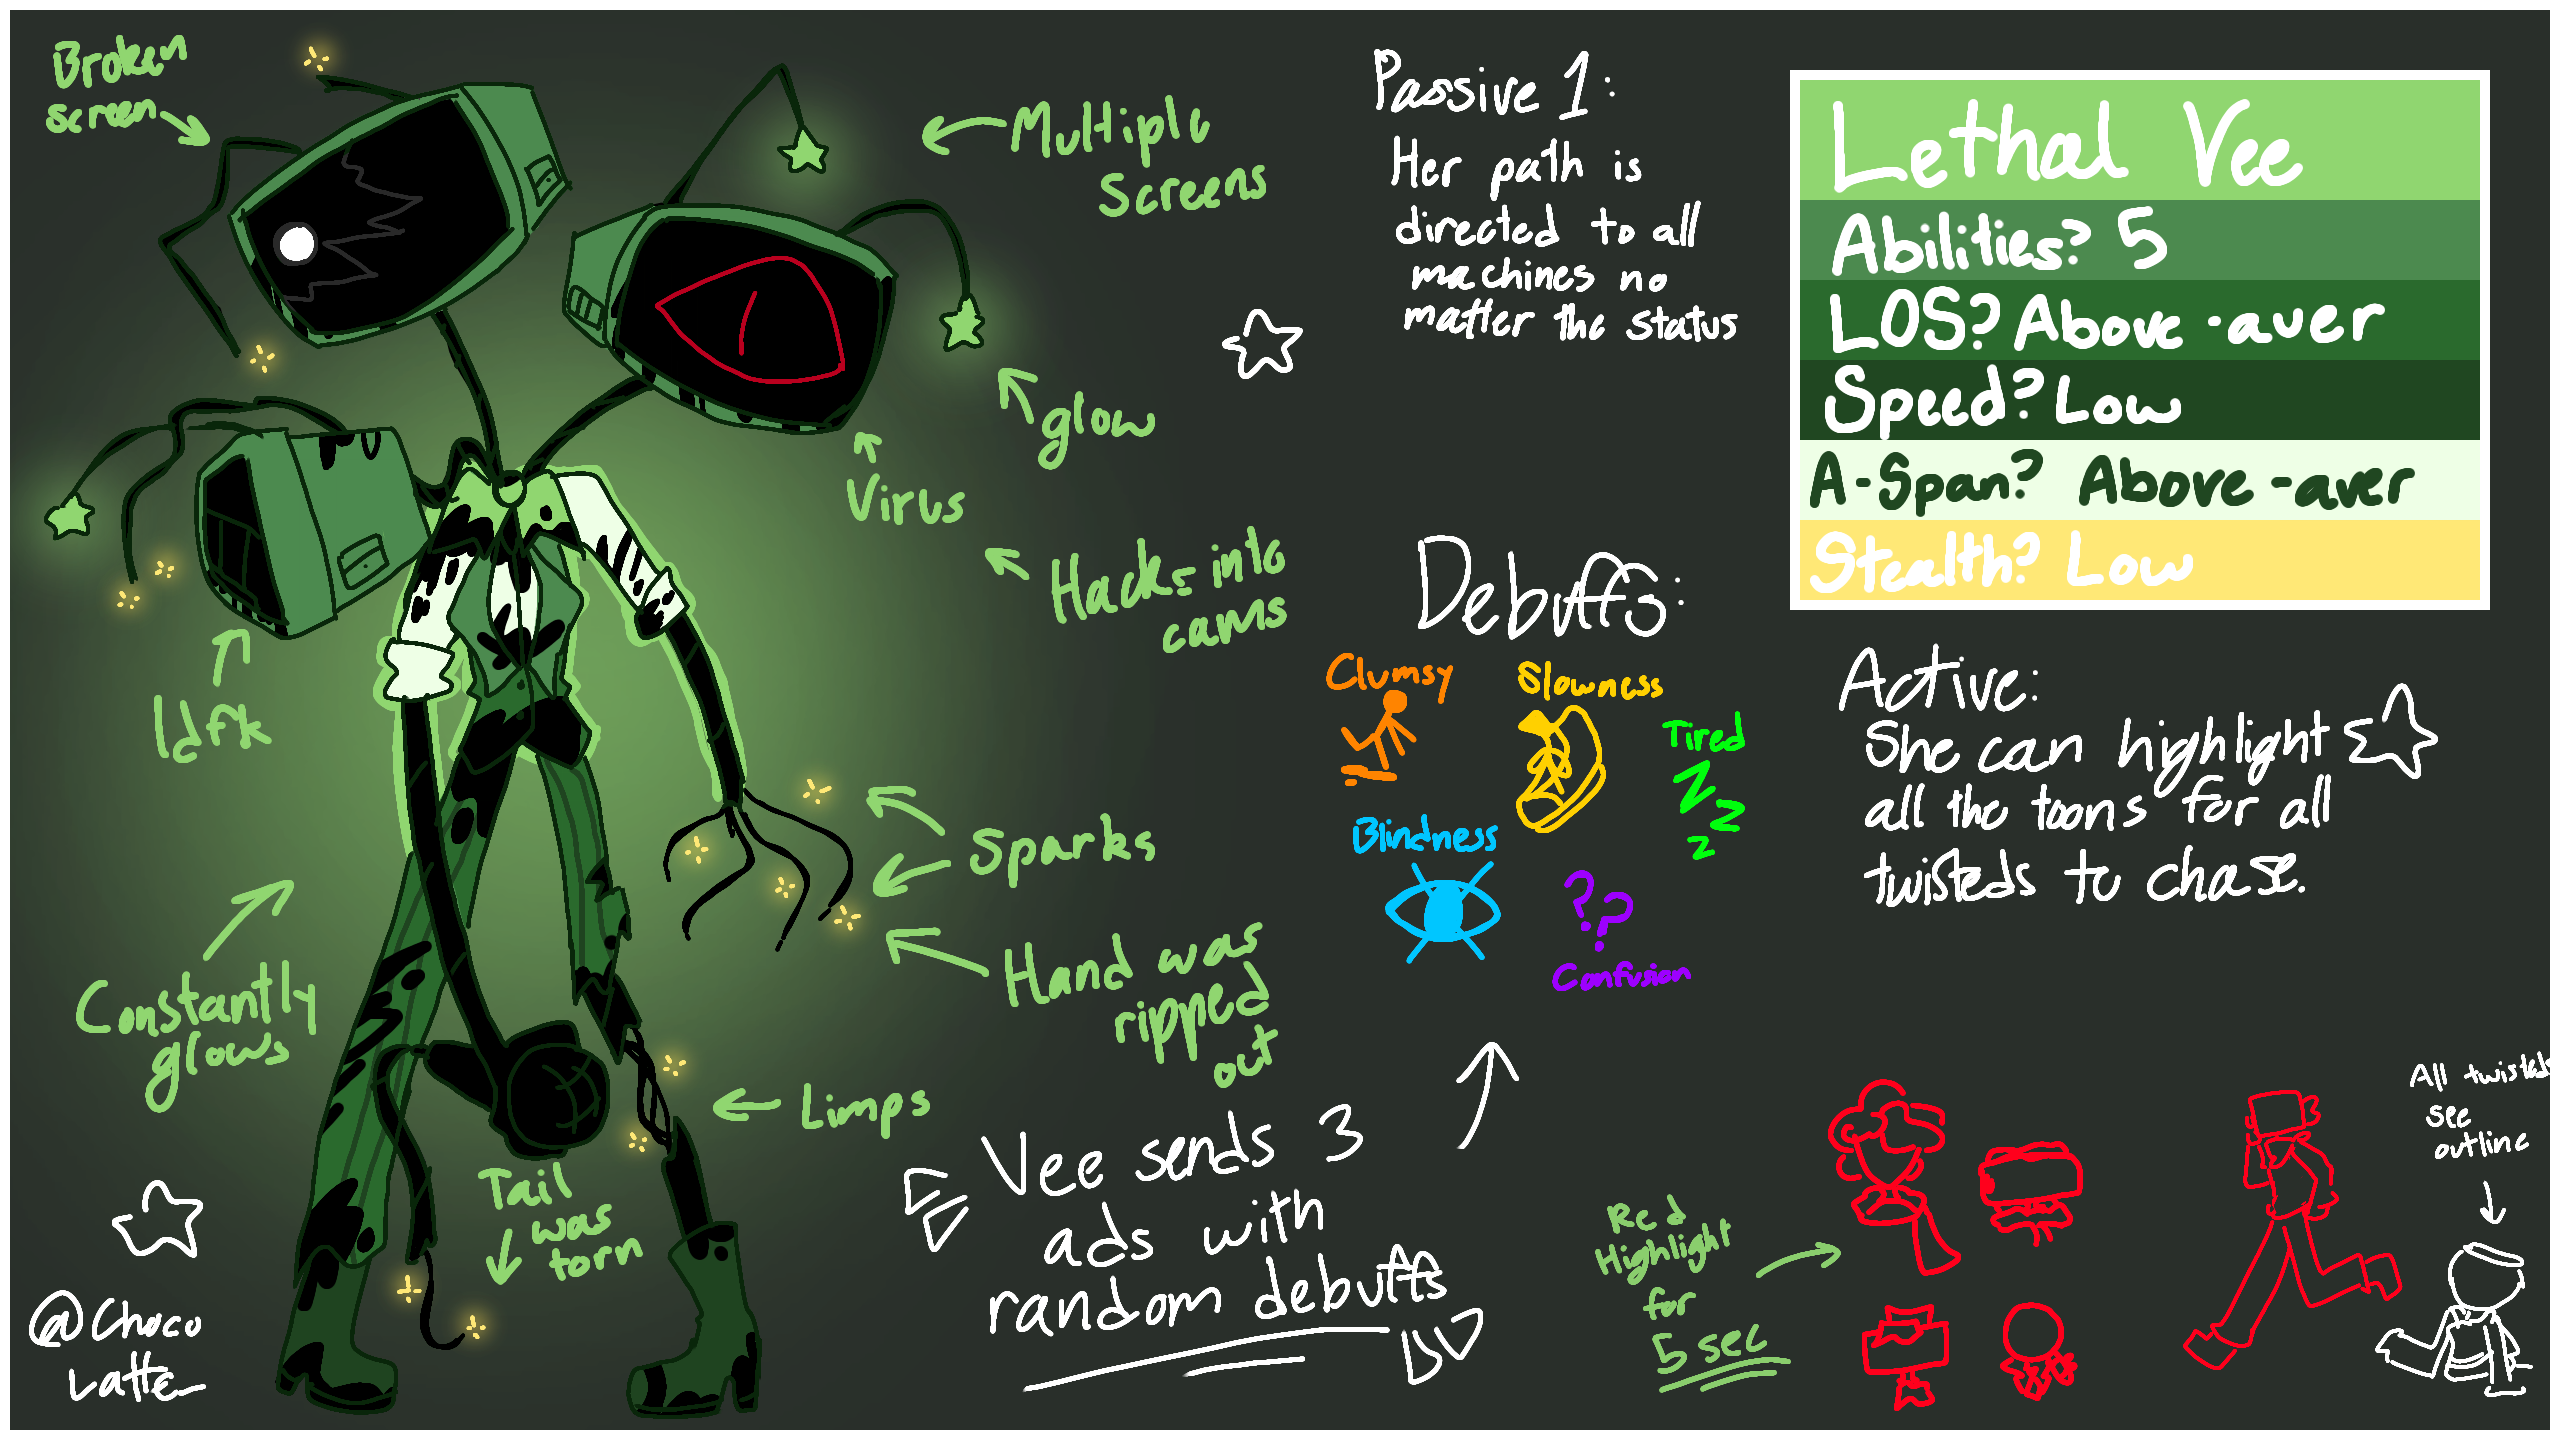 Broken
screen
Multiple
Screens
glow
Virus
Hacks into
cams
Idfk
Sparks
Hand was
ripped
out
Constantly
glows
Limps
Tail
was
torn
@Choco
Latte
Passive 1:
Her path is
directed to all
machines no
matter the status
Lethal Vee
Abilities? 5
LOS? Above-aver
Speed? Low
A-Span? Above-aver
Stealth? Low
Debuffs:
Clumsy
Slowness
Tired
Z
Z
Z
Blindness
??
Confusion
Vee sends 3
ads with
random debuffs
Active:
She can highlight
all the toons for all
twisteds to chase.
Red
Highlight
for
5 sec
All twisteds
see
outline